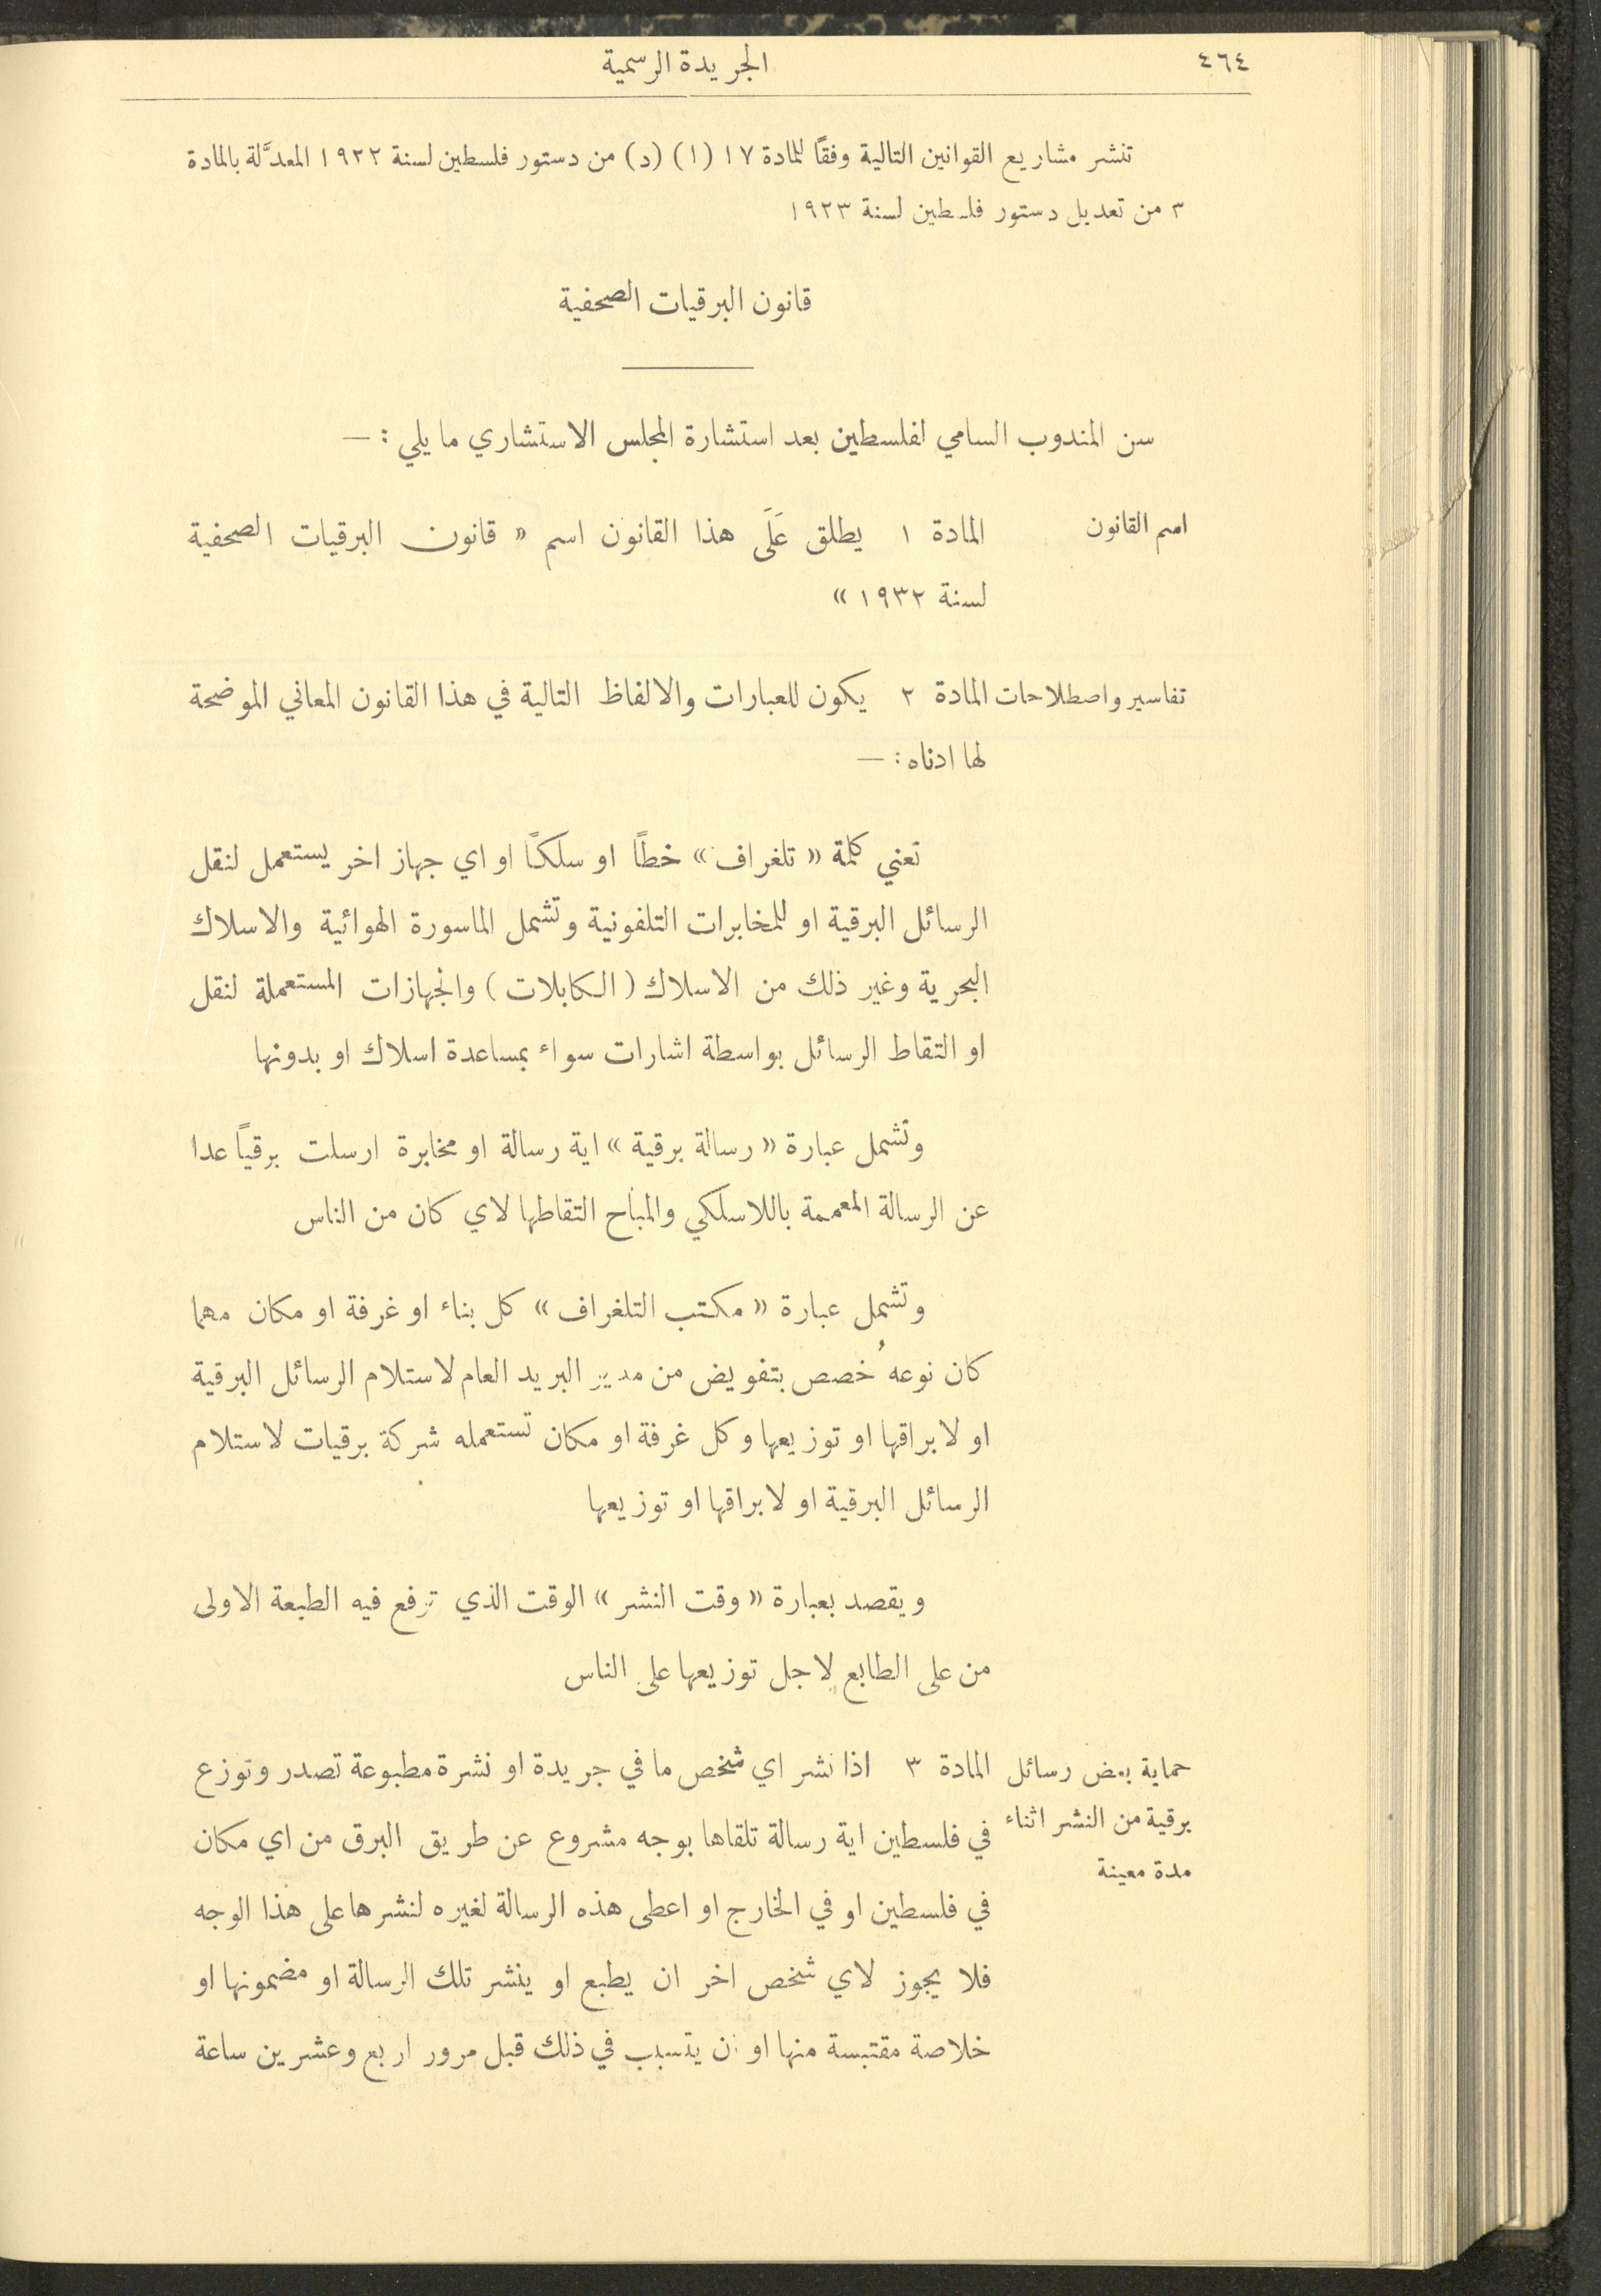 ٤٦٤
الجريدة الرسمية
تنشر مشاريع القوانين التالية وفقًا للمادة ١٧ (١) (د) من دستور فلسطين لسنة ١٩٢٢ المعدَّلة بالمادة
٣ من تعديل دستور فلسطين لسنة ١٩٢٣
قانون البرقيات الصحفية
سن المندوب السامي لفلسطين بعد استشارة المجلس الاستشاري ما يلي : —
اسم القانون
المادة ١ يطلق عَلَى هذا القانون اسم « قانون البرقيات الصحفية
لسنة ١٩٣٢ »
تفاسير واصطلاحات
المادة ٢ يكون للعبارات والالفاظ التالية في هذا القانون المعاني الموضحة
لها ادناه : —
تعني كلمة « تلغراف » خطًا او سلكًا او اي جهاز اخر يستعمل لنقل
الرسائل البرقية او للمخابرات التلفونية وتشمل الماسورة الهوائية والاسلاك
البحرية وغير ذلك من الاسلاك ( الكابلات ) والجهازات المستعملة لنقل
او التقاط الرسائل بواسطة اشارات سواء بمساعدة اسلاك او بدونها
وتشمل عبارة « رسالة برقية » اية رسالة او مخابرة ارسلت برقيًا عدا
عن الرسالة المعممة باللاسلكي والمباح التقاطها لاي كان من الناس
وتشمل عبارة « مكتب التلغراف » كل بناء او غرفة او مكان مهما
كان نوعه خُصص بتفويض من مدير البريد العام لاستلام الرسائل البرقية
او لابراقها او توزيعها وكل غرفة او مكان تستعمله شركة برقيات لاستلام
الرسائل البرقية او لابراقها او توزيعها
ويقصد بعبارة « وقت النشر » الوقت الذي ترفع فيه الطبعة الاولى
من على الطابع لاجل توزيعها على الناس
حماية بعض رسائل
برقية من النشر اثناء
مدة معينة
المادة ٣ اذا نشر اي شخص ما في جريدة او نشرة مطبوعة تصدر وتوزع
في فلسطين اية رسالة تلقاها بوجه مشروع عن طريق البرق من اي مكان
في فلسطين او في الخارج او اعطى هذه الرسالة لغيره لنشرها على هذا الوجه
فلا يجوز لاي شخص اخر ان يطبع او ينشر تلك الرسالة او مضمونها او
خلاصة مقتبسة منها او ان يتسبب في ذلك قبل مرور اربع وعشرين ساعة